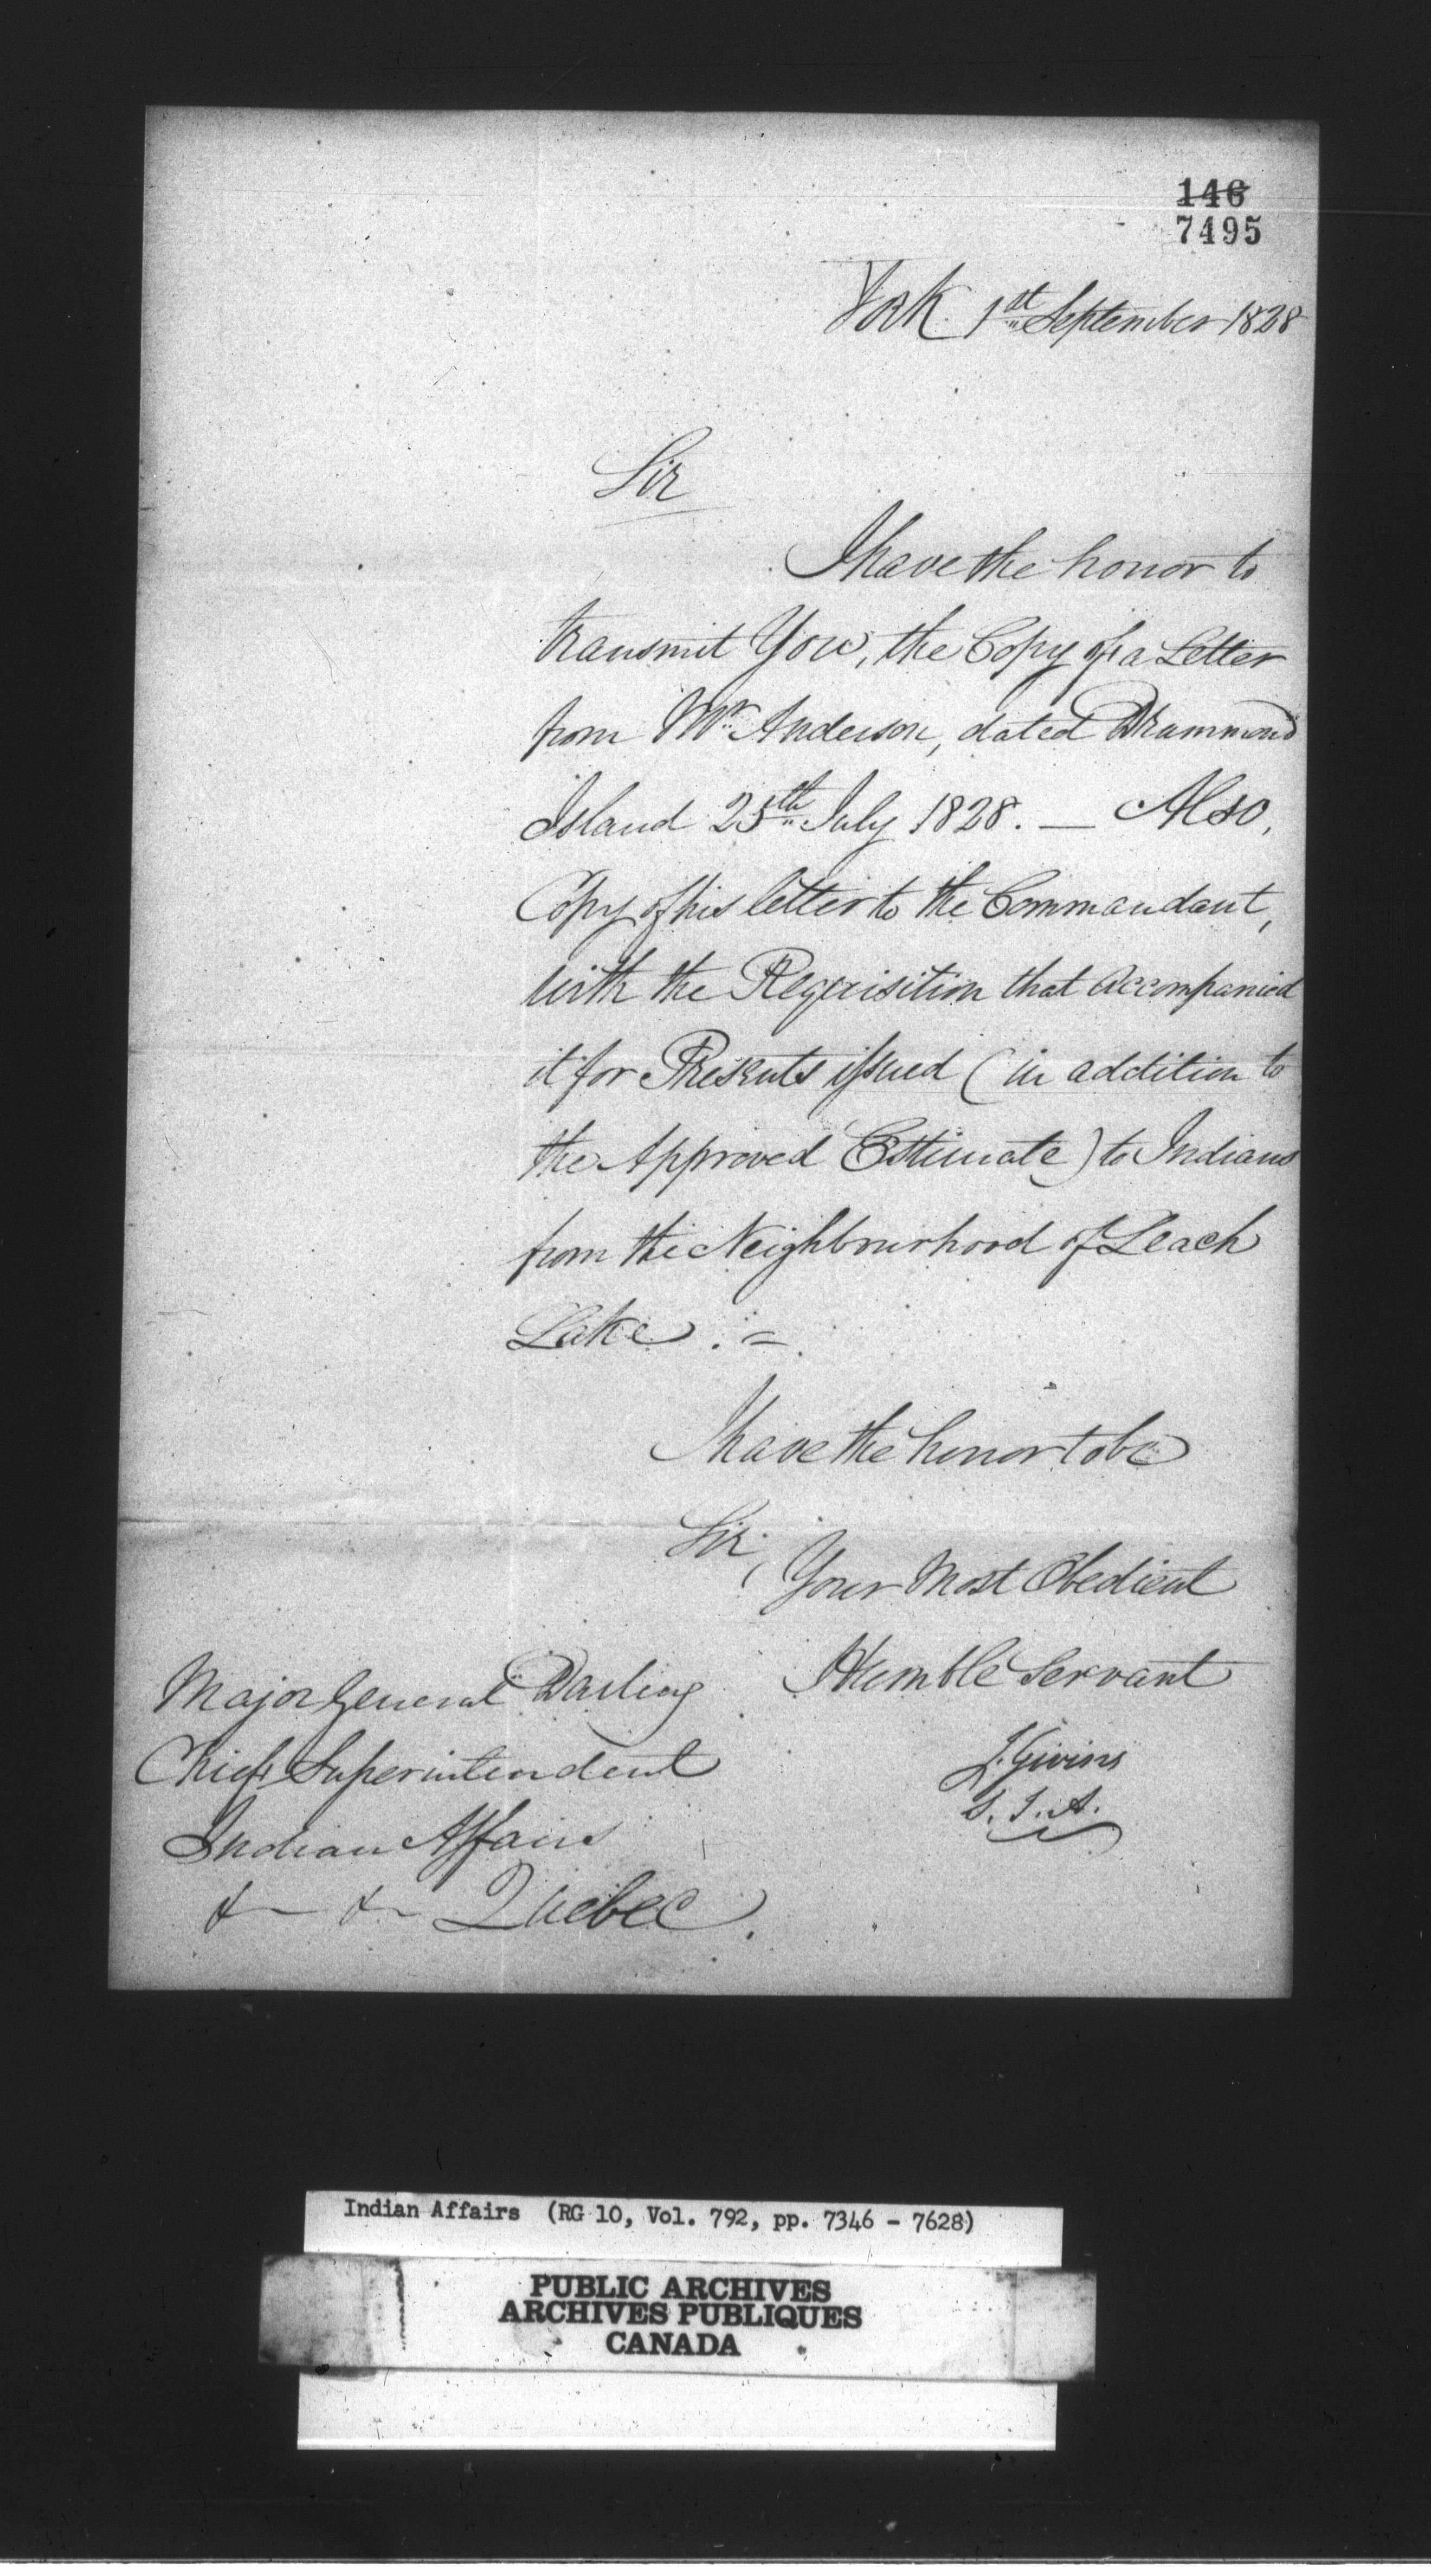 146
7495
York 1st September 1828
Sir
I have the honor to
transmit You, the Copy of a Letter
from Mr. Anderson, dated Drummond
Island 25th July 1828. — Also,
Copy of his letter to the Commandant,
with the Requisition that accompanied
it for Presents issued (in addition to
the Approved Estimate) to Indians
from the Neighbourhood of Leach
Lake. =
I have the honor to be
Sir,
Your Most Obedient
Humble Servant
J. Givins
S. I. A.
Major General Darling
Chief Superintendent
Indian Affairs
&— &— Quebec.
Indian Affairs (RG 10, Vol. 792, pp. 7346 - 7628)
PUBLIC ARCHIVES
ARCHIVES PUBLIQUES
CANADA